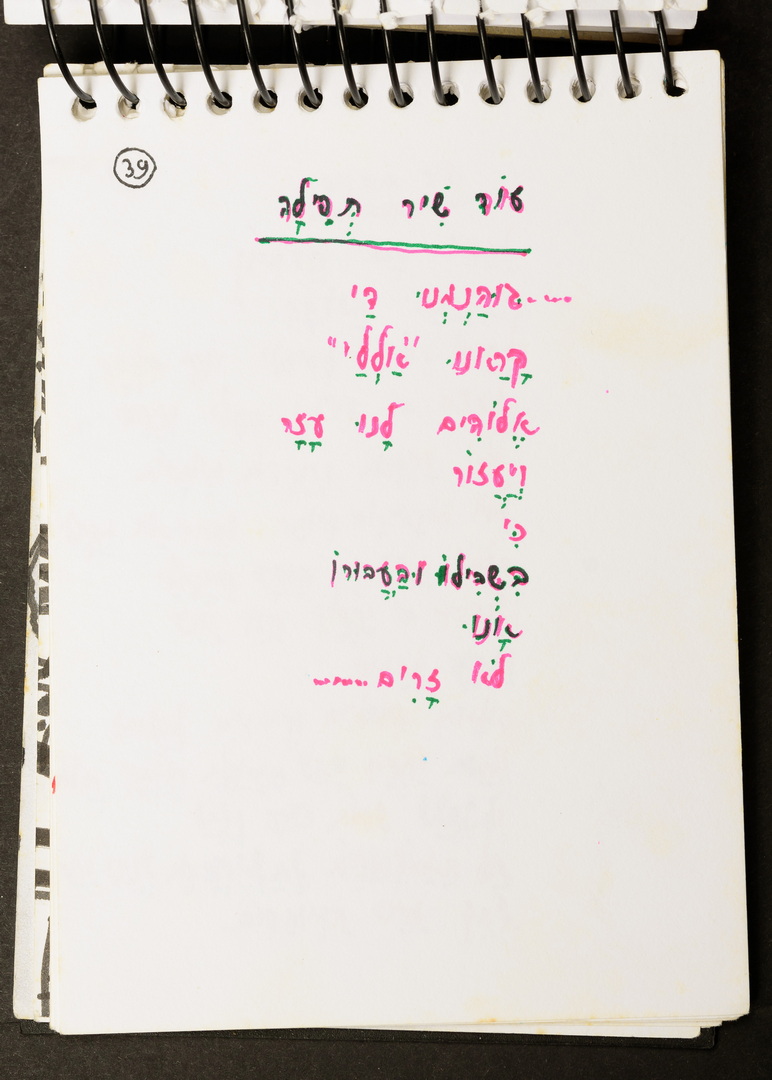 39
עוֹד שִׁיר תְּפִילָה
דַּי
קָרָאנוּ "אַלְלַי"
אֱלוֹהִים לָנוּ עָזַר
וְיַעֲזוֹר
כִּי
בִּשְׁבִילוֹ וּבַעֲבוּרוֹ
אָנוּ
לֹא זָרִים......